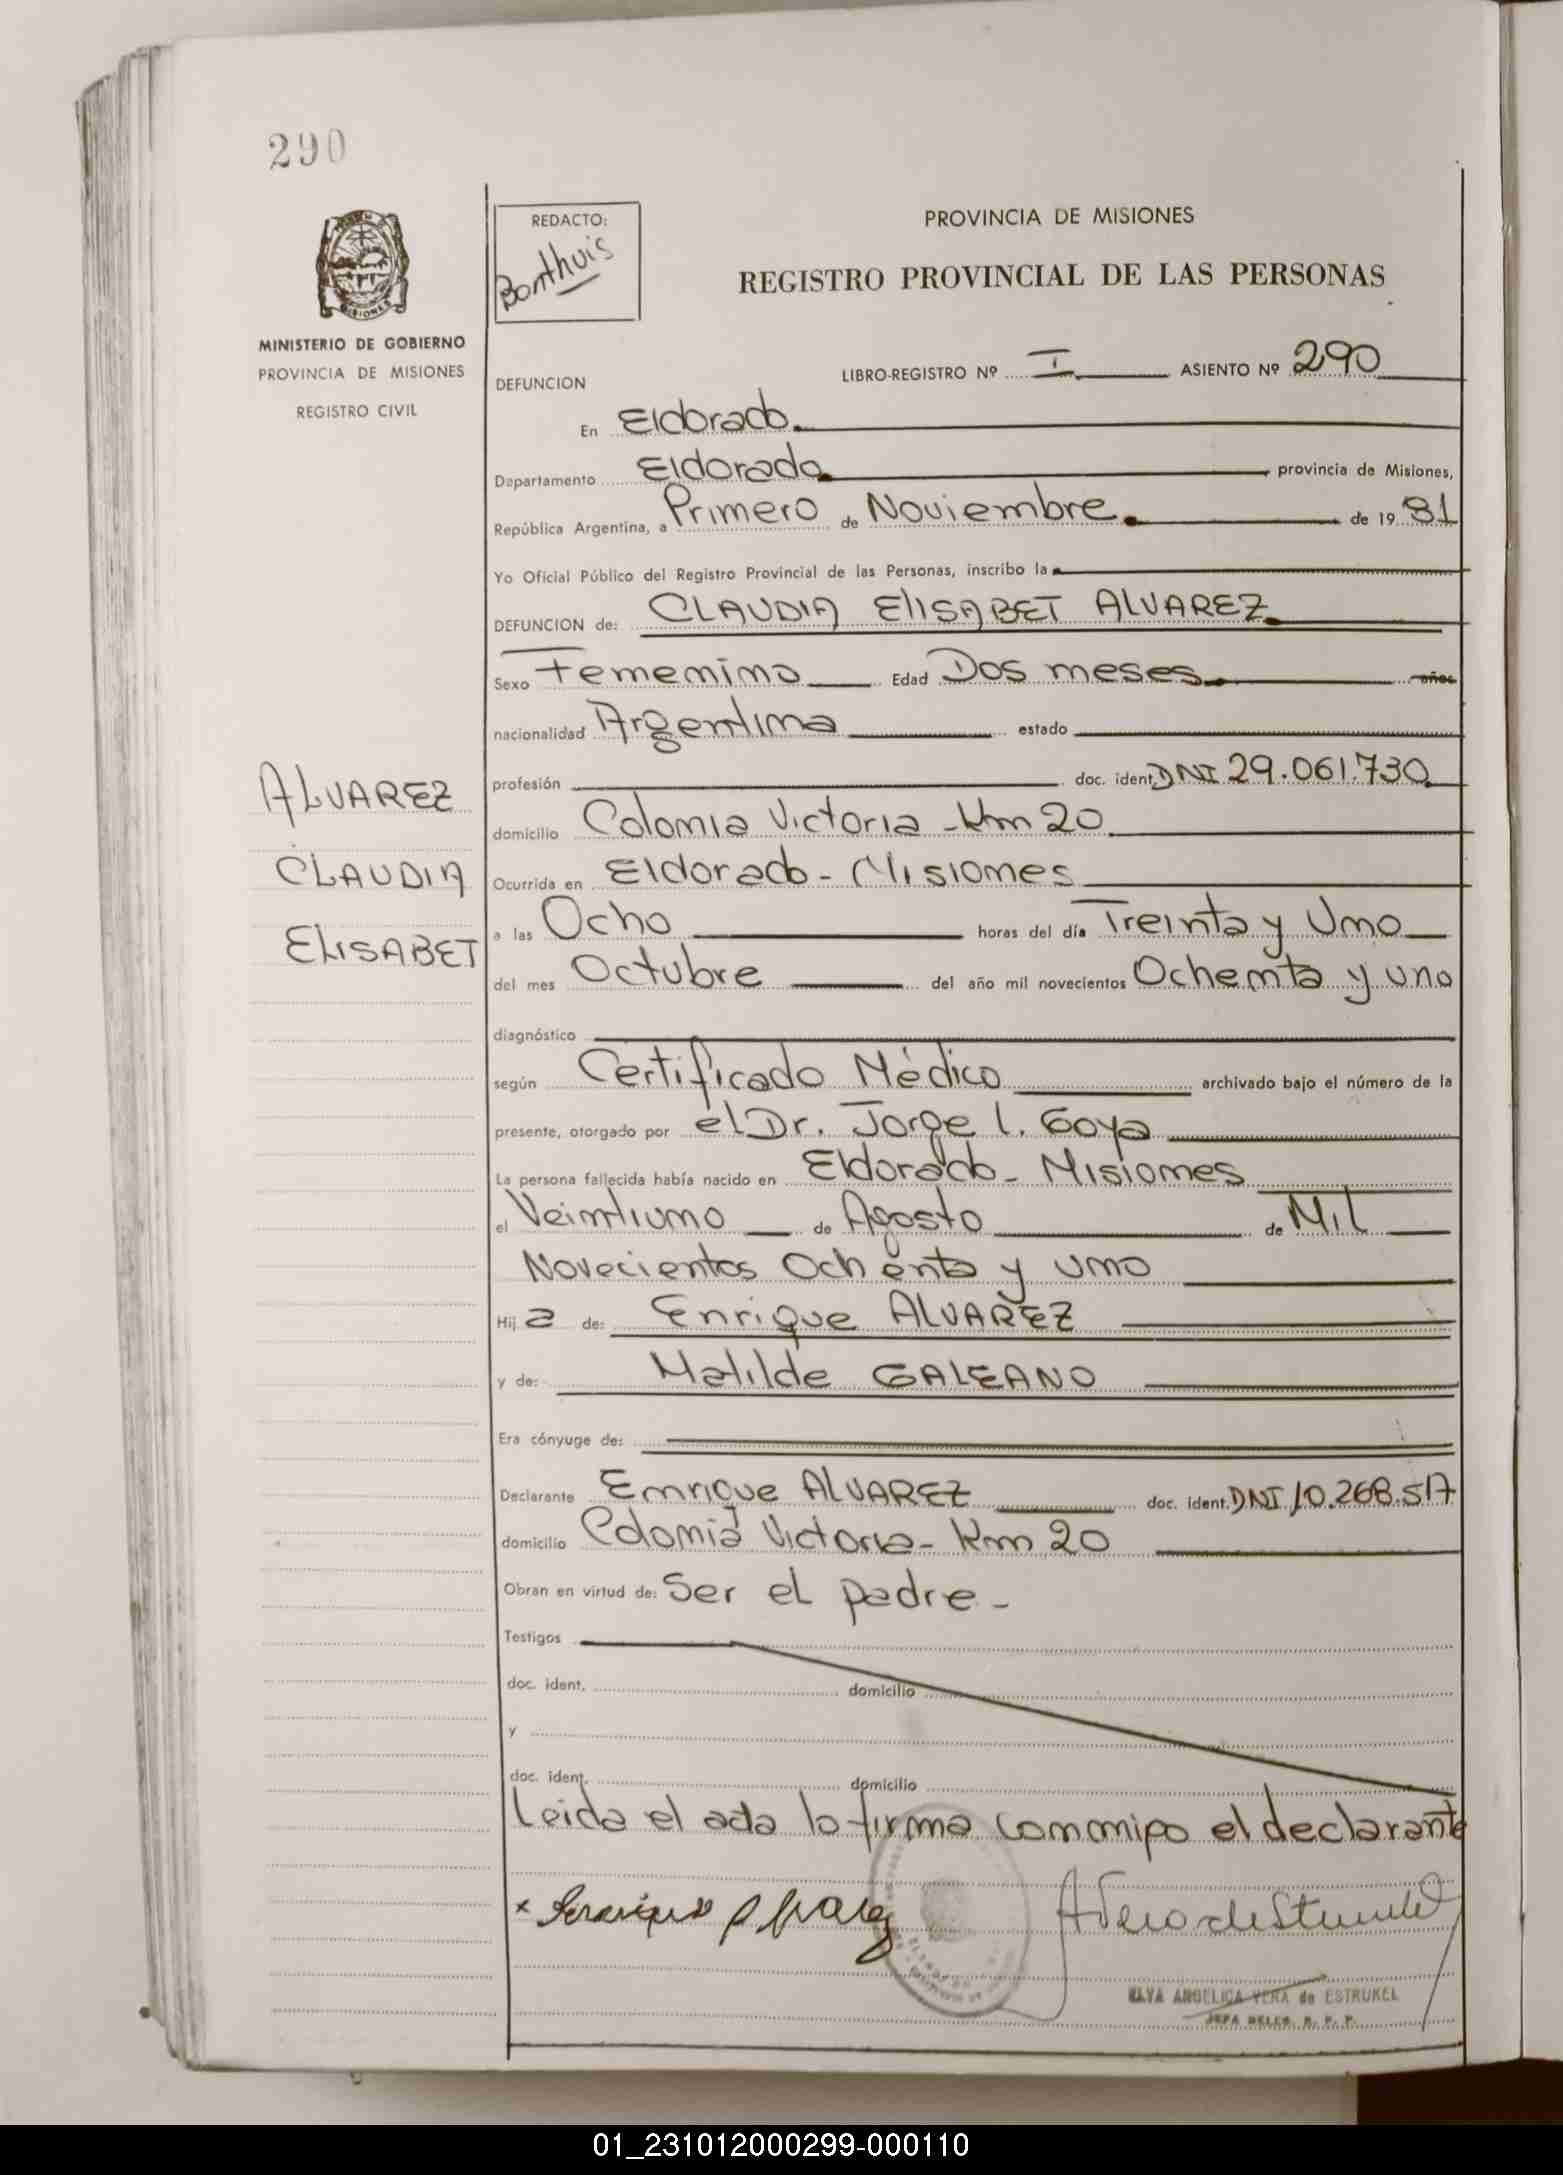 290
REDACTO:
Bonthuis
PROVINCIA DE MISIONES
REGISTRO PROVINCIAL DE LAS PERSONAS
MINISTERIO DE GOBIERNO
PROVINCIA DE MISIONES
REGISTRO CIVIL
DEFUNCION LIBRO-REGISTRO Nº I ASIENTO Nº 290
En Eldorado.
Departamento Eldorado provincia de Misiones,
República Argentina, a Primero de Noviembre. de 19 81
Yo Oficial Público del Registro Provincial de las Personas, inscribo la
DEFUNCION de: CLAUDIA ELISABET ALVAREZ
Sexo Femenino Edad Dos meses años
nacionalidad Argentina estado
profesión doc. ident. DNI 29.061.730
ALVAREZ
CLAUDIA
ELISABET
domicilio Colonia Victoria - Km 20
Ocurrida en Eldorado - Misiones
a las Ocho horas del día Treinta y Uno
del mes Octubre del año mil novecientos Ochenta y uno
diagnóstico
según Certificado Médico archivado bajo el número de la
presente, otorgado por el Dr. Jorge l. Goya
La persona fallecida había nacido en Eldorado - Misiones
el Veintiuno de Agosto de Mil
Novecientos Ochenta y uno
Hij a de: Enrique ALVAREZ
y de: Matilde GALEANO
Era cónyuge de:
Declarante Enrique ALVAREZ doc. ident. DNI 10.268.517
domicilio Colonia Victoria - Km 20
Obran en virtud de: Ser el padre -
Testigos
doc. ident. domicilio
y
doc. ident. domicilio
Leida el acta la firma conmigo el declarante
ELVA ANGELICA VERA de ESTRUKEL
01_231012000299-000110